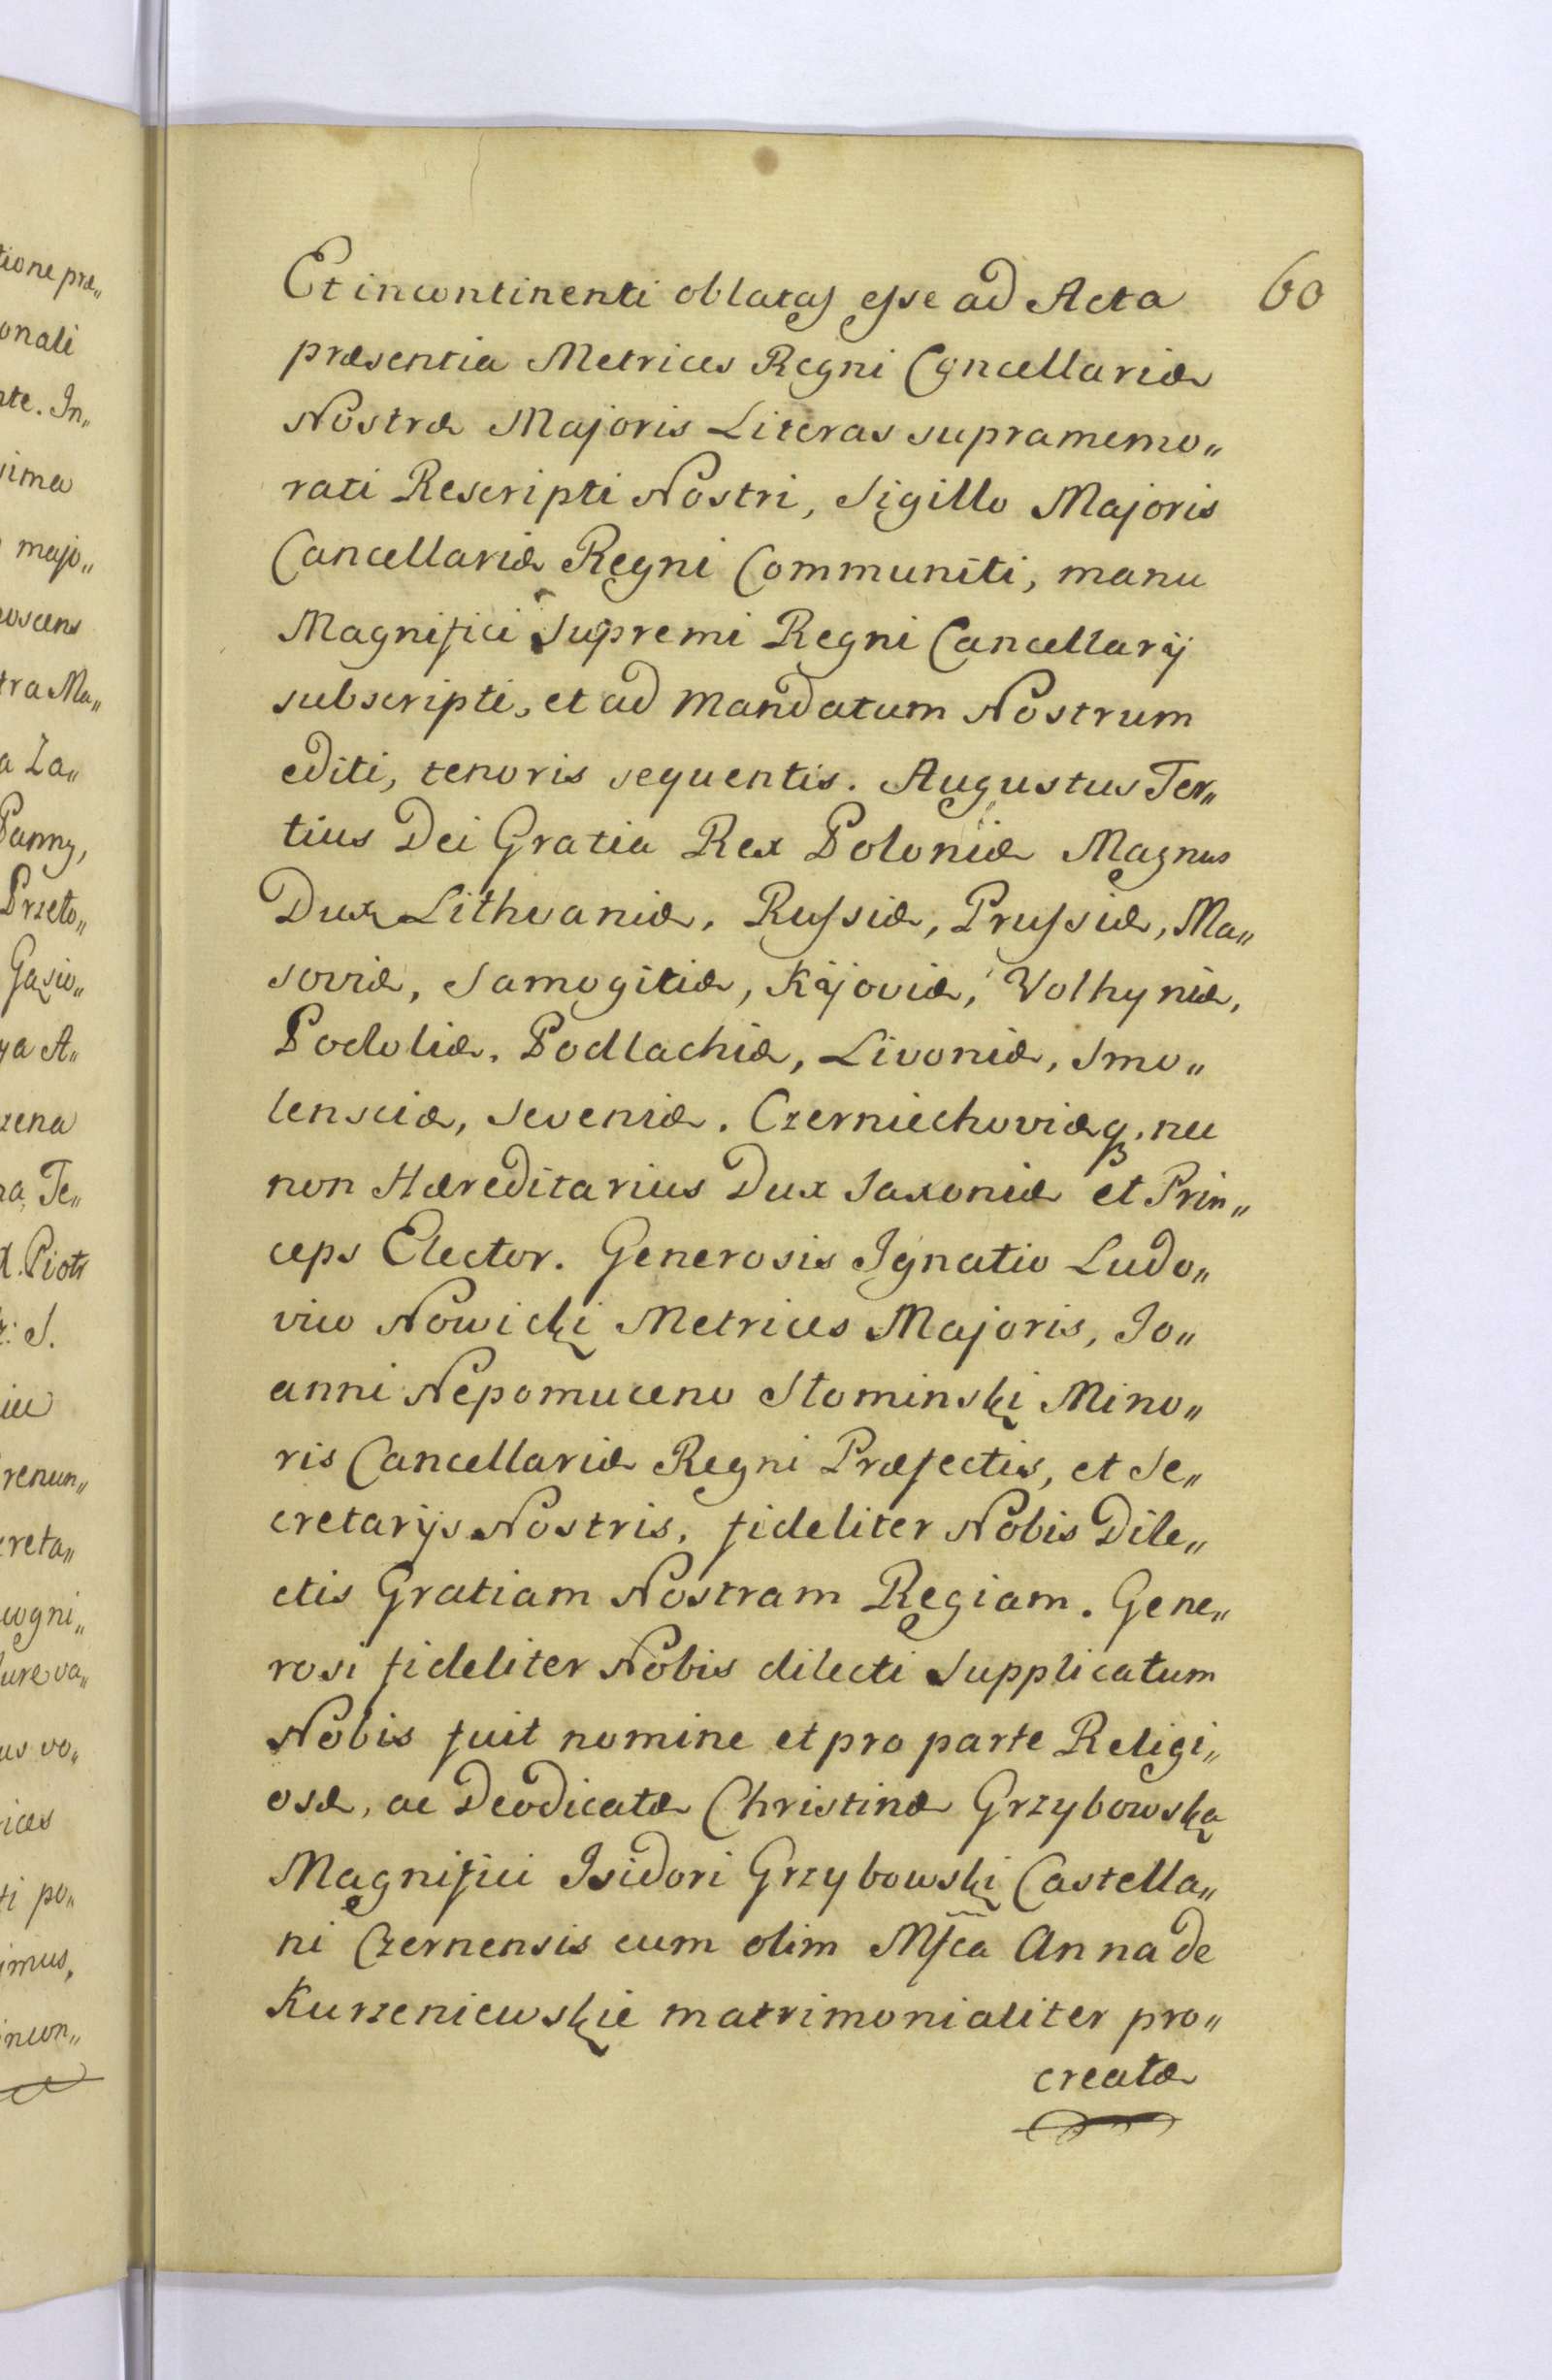 60
Et incontinenti oblatas esse ad Acta
præsentia Metrices Regni Cancellariæ
Nostræ Majoris Literas supramemo„
rati Rescripti Nostri, Sigillo Majoris
Cancellariæ Regni Communiti, manu
Magnifici Supremi Regni Cancellarij
subscripti, et ad mandatum Nostrum
editi, tenoris sequentis. Augustus Ter„
tius Dei Gratia Rex Poloniæ Magnus
Dux Lithvaniæ, Russiæ, Prussiæ, Ma„
soviæ, Samogitiæ, Kijoviæ, Volhyniæ,
Podoliæ, Podlachiæ, Livoniæ, Smo„
lensciæ, Seveniæ. Czerniechoviæq, nec
non Hæreditarius Dux Saxoniæ et Prin„
ceps Elector. Generosis Ignatio Ludo„
vico Nowicki Metrices Majoris, Jo„
anni Nepomuceno Słominski Mino„
ris Cancellariæ Regni Præfectis, et Se„
cretarijs Nostris, fideliter Nobis Dile„
ctis Gratiam Nostram Regiam. Gene„
rosi fideliter Nobis dilecti Supplicatum
Nobis fuit nomine et pro parte Religi„
osæ, ac Deodicatæ Christinæ Grzybowska
Magnifici Isidori Grzybowski Castella„
ni Czernensis cum olim Mfca Anna de
Kurzeniewskie matrimonialiter pro„
creatæ
tione præ„
onali
nte. In„
sima
majo„
tra Ma„
a Za„
Panny,
Przeto„
ya A„
zena
na, Te„
Piotr
renun„
creta„
cogni„
Jure va„
us vo„
rices
ti po„
imus,
incon„